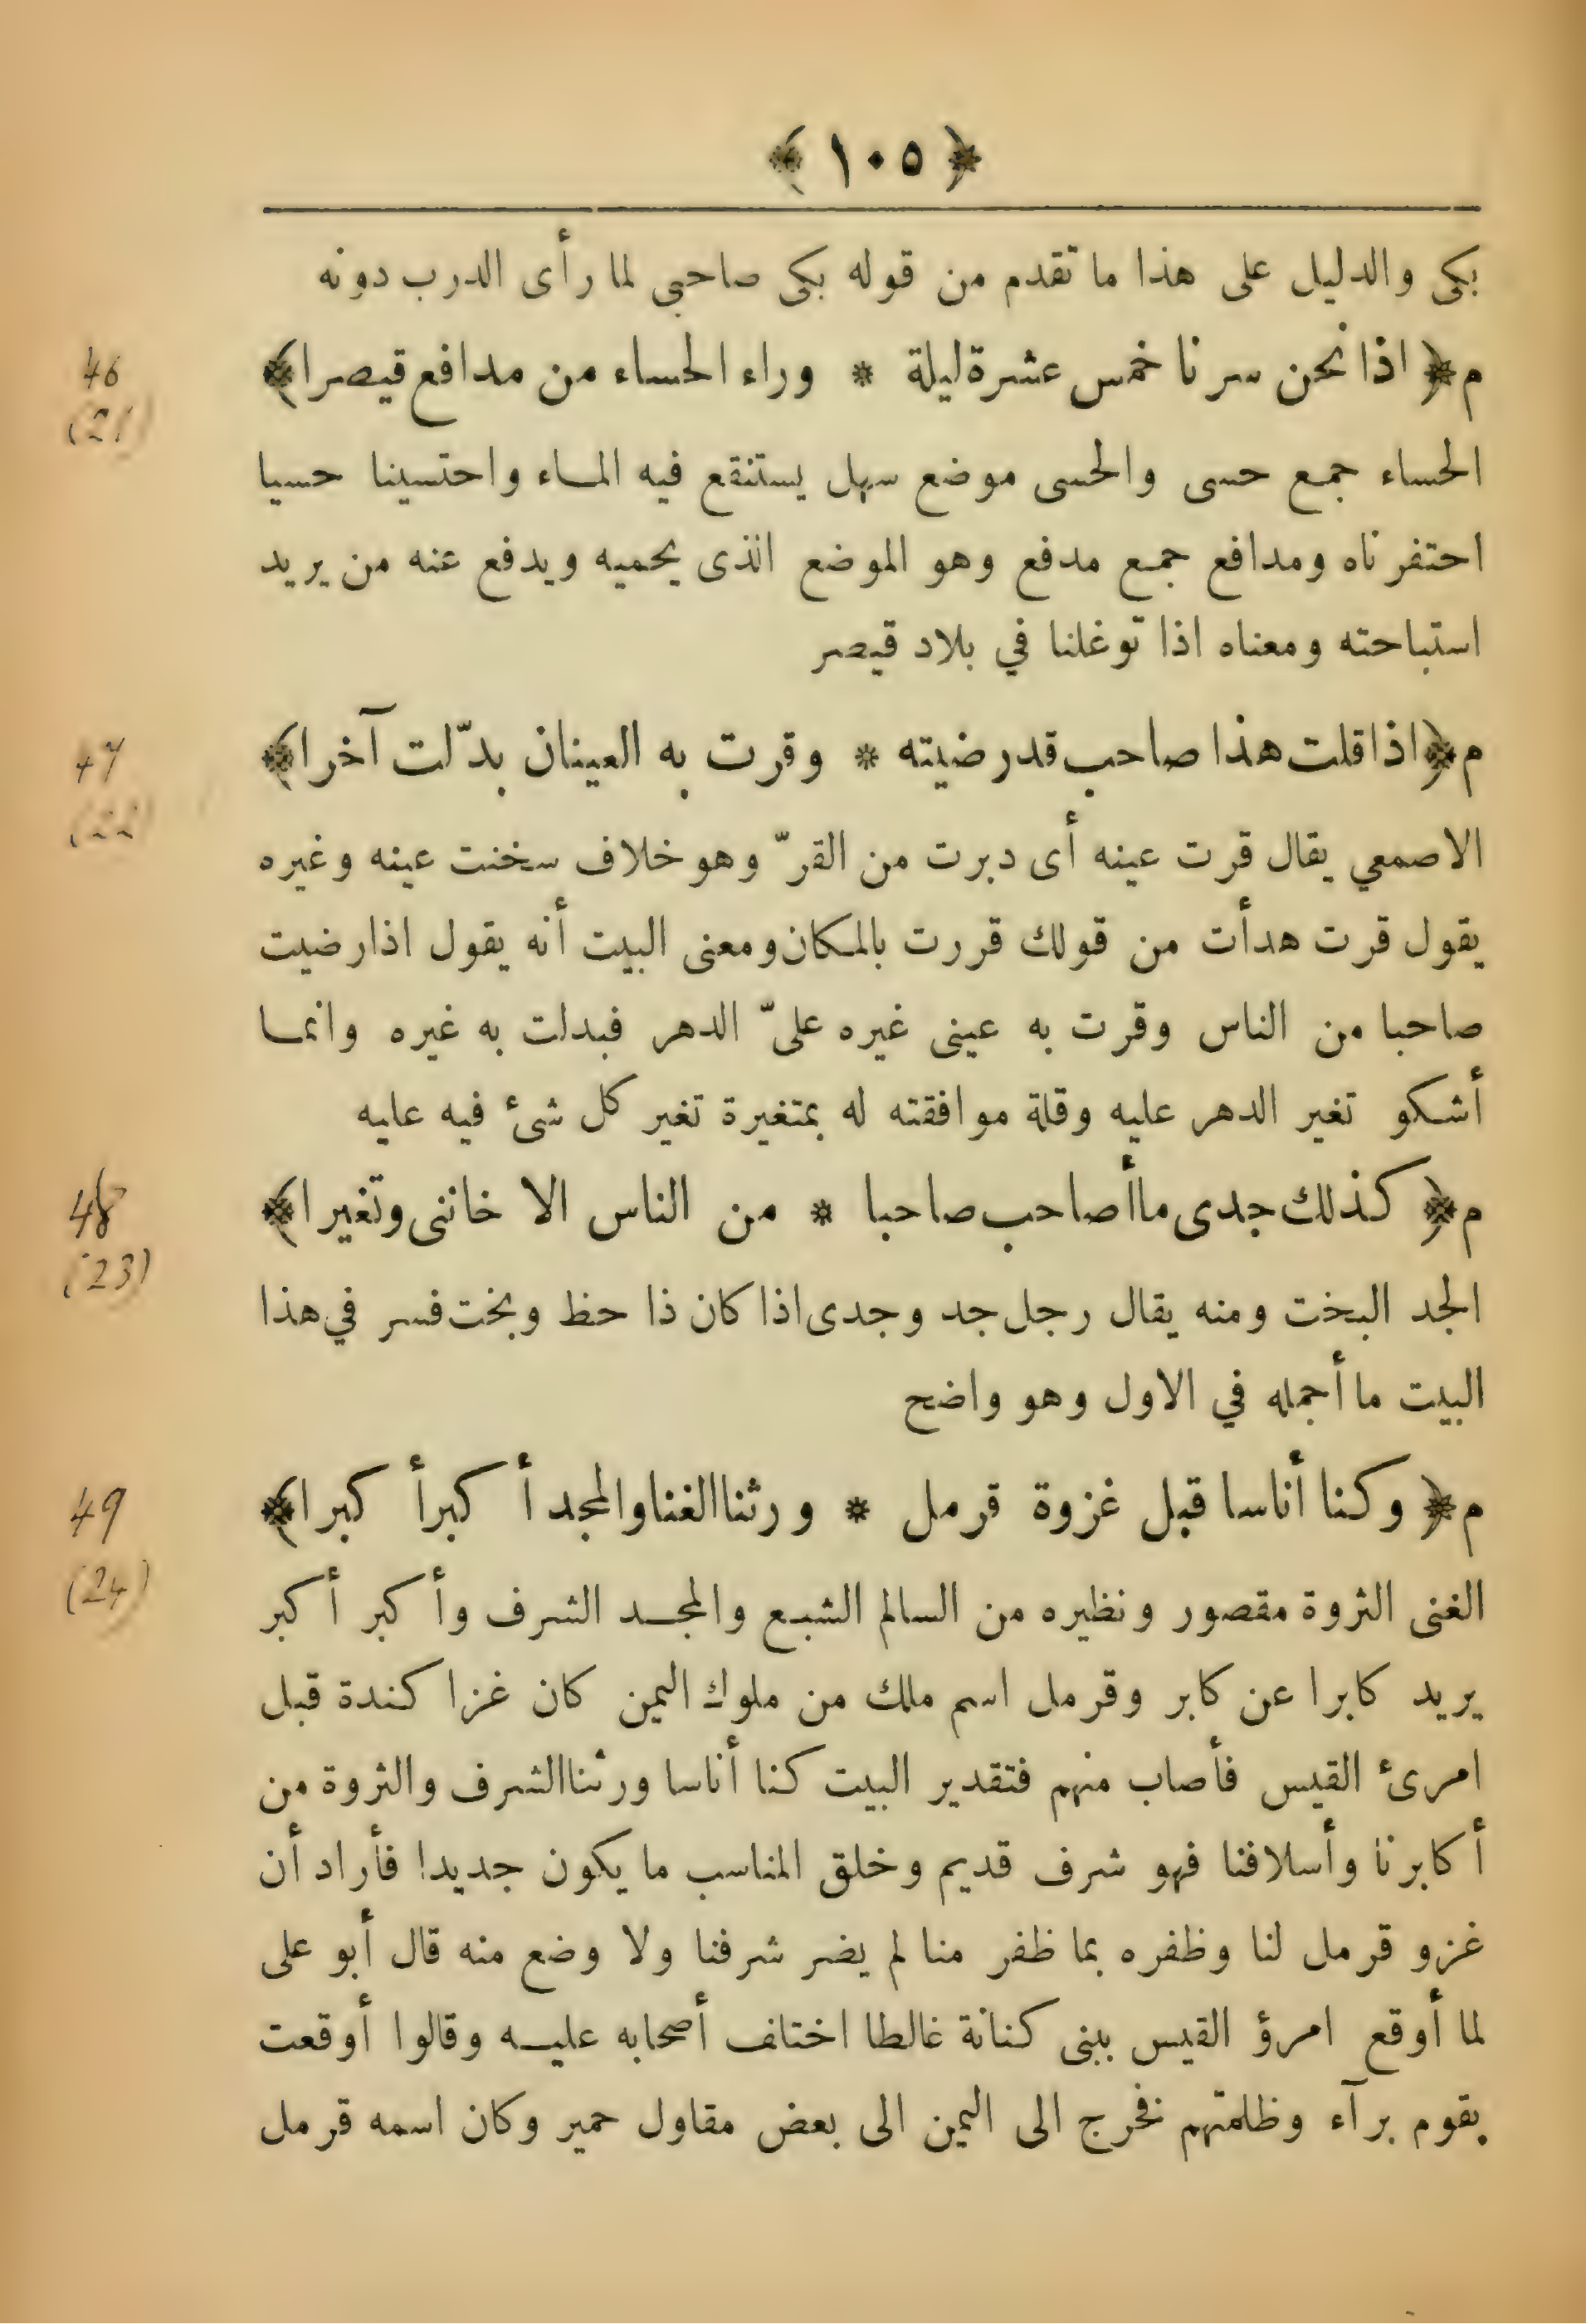 ﴿ ١٠٥ ﴾
بكى والدليل على هذا ما تقدم من قوله بكى صاحبي لما رأى الدرب دونه
م﴿ اذا نحن سرنا خمس عشرة ليلة * وراء الحساء من مدافع قيصرا ﴾
46
(21)
الحساء جمع حسى والحسى موضع سهل يستنقع فيه المــاء واحتسينا حسيا
احتفرناه ومدافع جمع مدفع وهو الموضع الذى يحميه ويدفع عنه من يريد
استباحته ومعناه اذا توغلنا في بلاد قيصر
م﴿ اذا قلت هذا صاحب قد رضيته * وقرت به العينان بدّلت آخرا ﴾
47
(22)
الاصمعي يقال قرت عينه أى دبرت من القرّ وهو خلاف سخنت عينه وغيره
يقول قرت هدأت من قولك قررت بالمكان ومعنى البيت أنه يقول اذا رضيت
صاحبا من الناس وقرت به عينى غيره علىّ الدهر فبدلت به غيره وانمــا
أشكو تغير الدهر عليه وقلة موافقته له بمتغيرة تغير كل شئ فيه عليه
م﴿ كذلك جدى ما أصاحب صاحبا * من الناس الا خاننى وتغيرا ﴾
48
(23)
الجد البخت ومنه يقال رجل جد وجدى اذا كان ذا حظ وبخت فسر في هذا
البيت ما أجمله في الاول وهو واضح
م﴿ وكنا أناسا قبل غزوة قرمل * ورثنا الغنا والمجد أكبر أكبرا ﴾
49
(24)
الغنى الثروة مقصور ونظيره من السالم الشبع والمجــد الشرف وأكبر أكبر
يريد كابرا عن كابر وقرمل اسم ملك من ملوك اليمن كان غزا كندة قبل
امرئ القيس فأصاب منهم فتقدير البيت كنا أناسا ورثنا الشرف والثروة من
أكابرنا وأسلافنا فهو شرف قديم وخلق المناسب ما يكون جديدا فأراد أن
غزو قرمل لنا وظفره بما ظفر منا لم يضر شرفنا ولا وضع منه قال أبو على
لما أوقع امرؤ القيس ببنى كنانة غالطا اختلف أصحابه عليــه وقالوا أوقعت
بقوم برآء وظلمتهم فخرج الى اليمن الى بعض مقاول حمير وكان اسمه قرمل